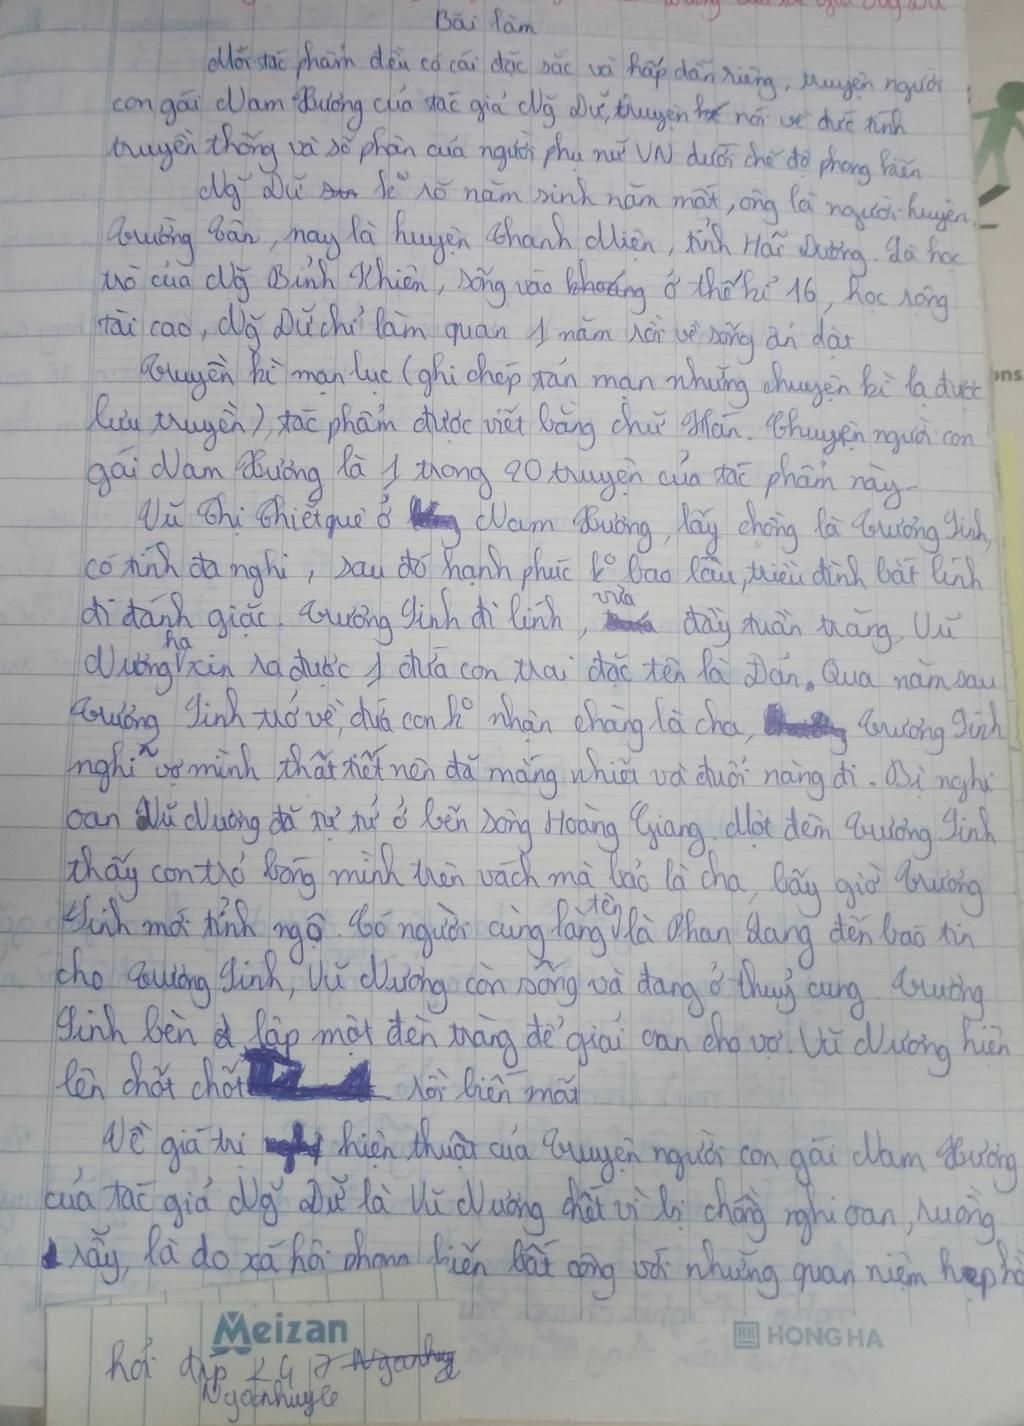 Bài làm
Mỗi tác phẩm đều có cái đặc sắc và hấp dẫn riêng, truyện người
con gái Nam Xương của tác giả Ng~ Dữ, truyện nói về đức tính
truyền thống và số phận của người phụ nữ VN dưới chế độ phong kiến
Ng~ Dữ k° rõ năm sinh năm mất, ông là người huyện
Trường Tân, nay là huyện Thanh Miện, tỉnh Hải Dương. Là học
trò của Ng~ Bỉnh Khiên, sống vào khoảng ở thế kỉ 16, học rộng
tài cao, Ng~ Dữ chỉ làm quan 1 năm rồi về sống ẩn dật
Truyền kì mạn lục (ghi chép tản mạn những chuyện kì lạ được
lưu truyền), tác phẩm được viết bằng chữ Hán. Chuyện người con
gái Nam Xương là 1 trong 20 truyện của tác phẩm này.
Vũ Thị Thiết quê ở Nam Xương, lấy chồng là Trương Sinh,
có tính đa nghi, sau đó hạnh phúc k° bao lâu, triều đình bắt lính
đi đánh giặc. Trương Sinh đi lính, vừa đầy tuần trăng, Vũ
Nương hạ xin ra được 1 đứa con trai đặc tên là Đản. Qua năm sau
Trương Sinh trở về, đứa con k° nhận chàng là cha, Trương Sinh
nghĩ vợ mình thất tiết nên đã mắng nhiết và đuổi nàng đi. Bị nghi
oan Vũ Nương đã tự tử ở bến sông Hoàng Giang. Một đêm Trương Sinh
thấy con trỏ bóng mình trên vách mà bảo là cha, bấy giờ Trương
Sinh mới tỉnh ngộ. Có người cùng làng tên là Phan Lang đến báo tin
cho Trương Sinh, Vũ Nương còn sống và đang ở thuỷ cung. Trương
Sinh bèn lập một đèn tràng để giải oan cho vợ. Vũ Nương hiện
lên chốt chốt rồi biến mất
Về giá trị hiện thuật của Truyện người con gái Nam Xương
của tác giả Ng~ Dữ là Vũ Nương chết vì bị chồng nghi oan, ruồng
rẫy, là do xã hội phong kiến bất công với những quan niệm hẹp hò
Meizan
HONG HA
hỏi đáp